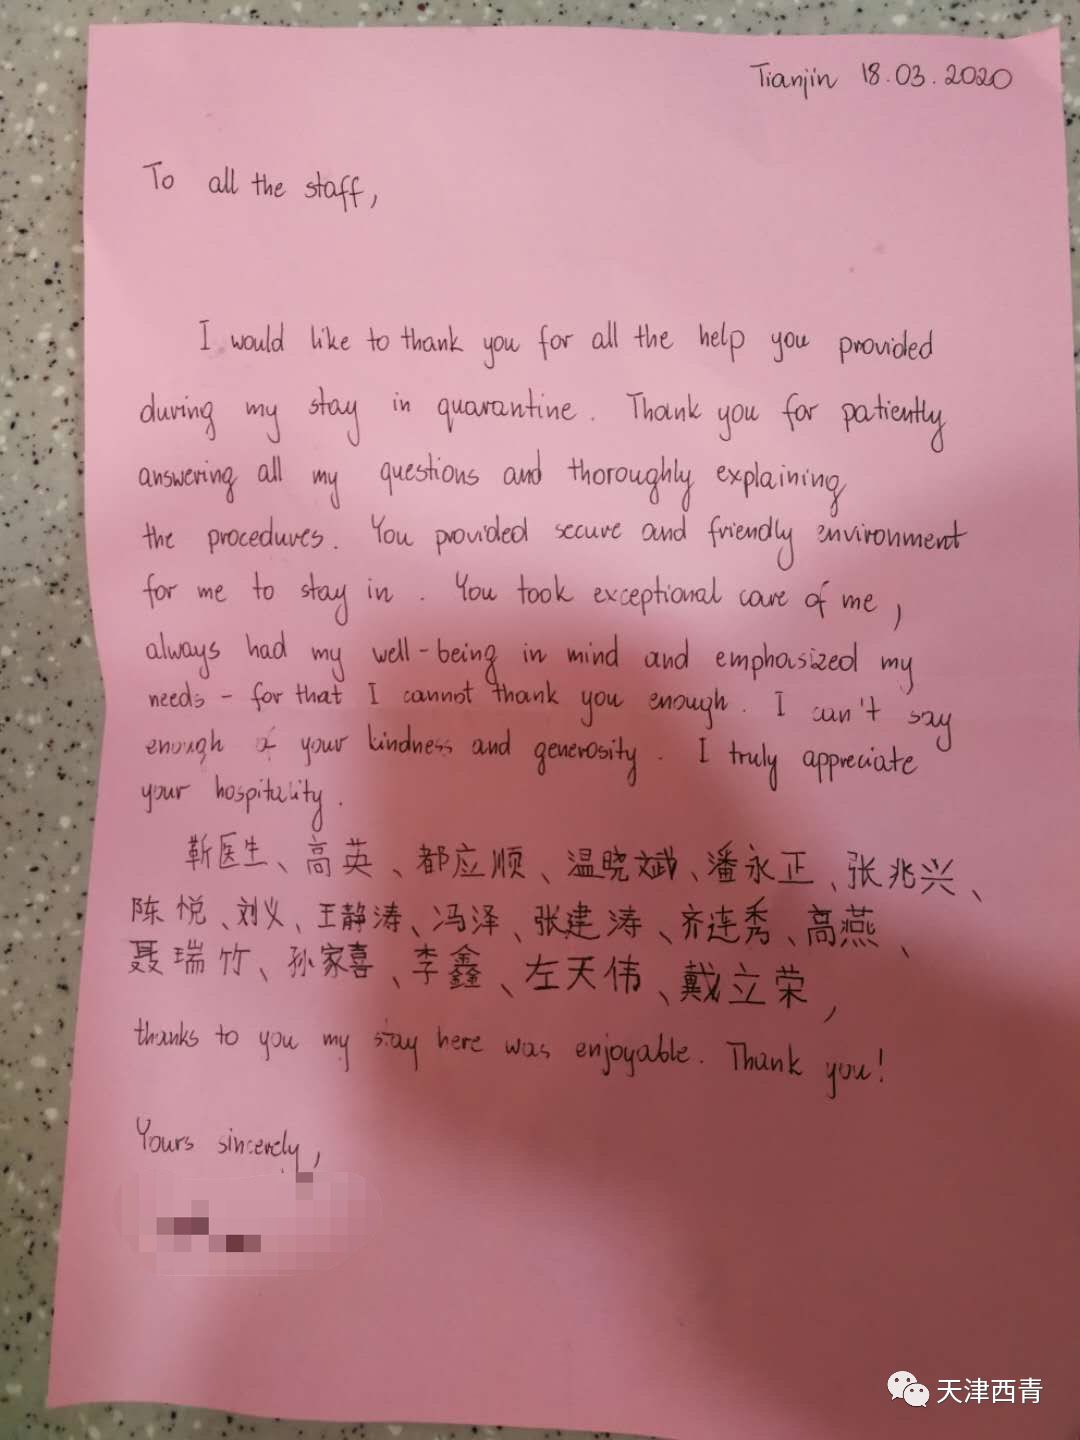 Tianjin 18.03.2020
To all the staff,
I would like to thank you for all the help you provided
during my stay in quarantine. Thank you for patiently
answering all my questions and thoroughly explaining
the procedures. You provided secure and friendly environment
for me to stay in. You took exceptional care of me,
always had my well-being in mind and emphasized my
needs - for that I cannot thank you enough. I can't say
enough of your kindness and generosity. I truly appreciate
your hospitality.
靳医生、高英、都应顺、温晓斌、潘永正、张兆兴、
陈悦、刘义、王静涛、冯泽、张建涛、齐连秀、高燕、
聂瑞竹、孙家喜、李鑫、左天伟、戴立荣,
thanks to you my stay here was enjoyable. Thank you!
Yours sincerely,
天津西青